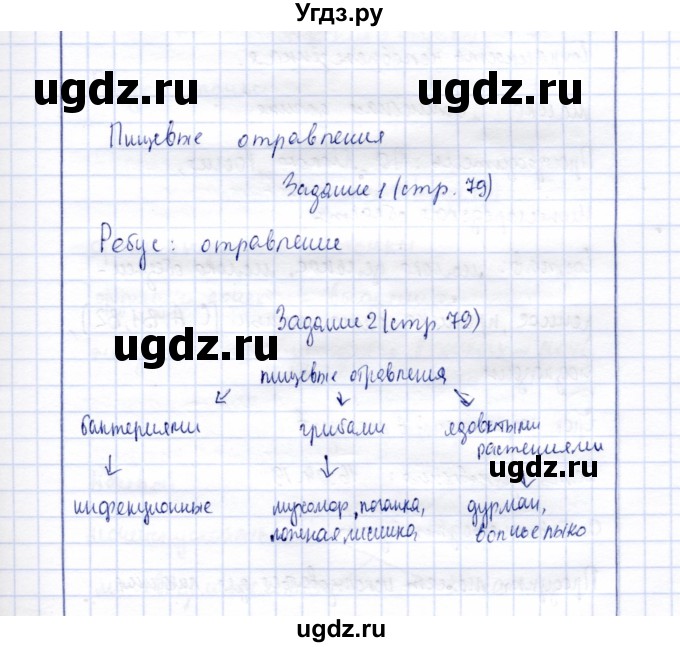 Угдз.ру
ugdz.ru ugdz.ru
Пищевые отравления
Задание 1 (стр. 79)
Ребус: отравление
Задание 2 (стр 79)
ugdz.ru
пищевые отравления
бактериями грибами ядовитыми
растениями
ugdz.ru
инфекционные мухомор, поганка, дурман,
ложная лисичка, волчье лыко
ugdz.ru